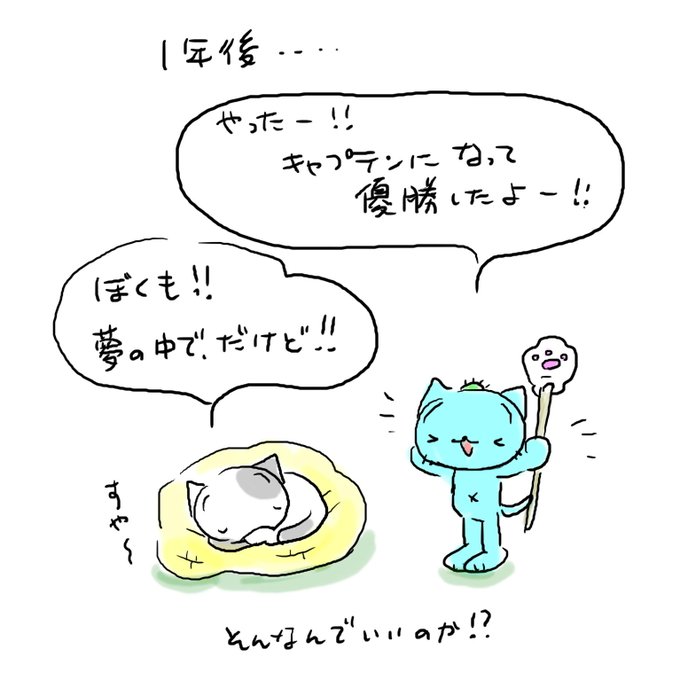 1年後‥‥
やったー!!
キャプテンになって
優勝したよー!!
ぼくも!!
夢の中で、だけど!!
すや〜
そんなんでいいのか!?